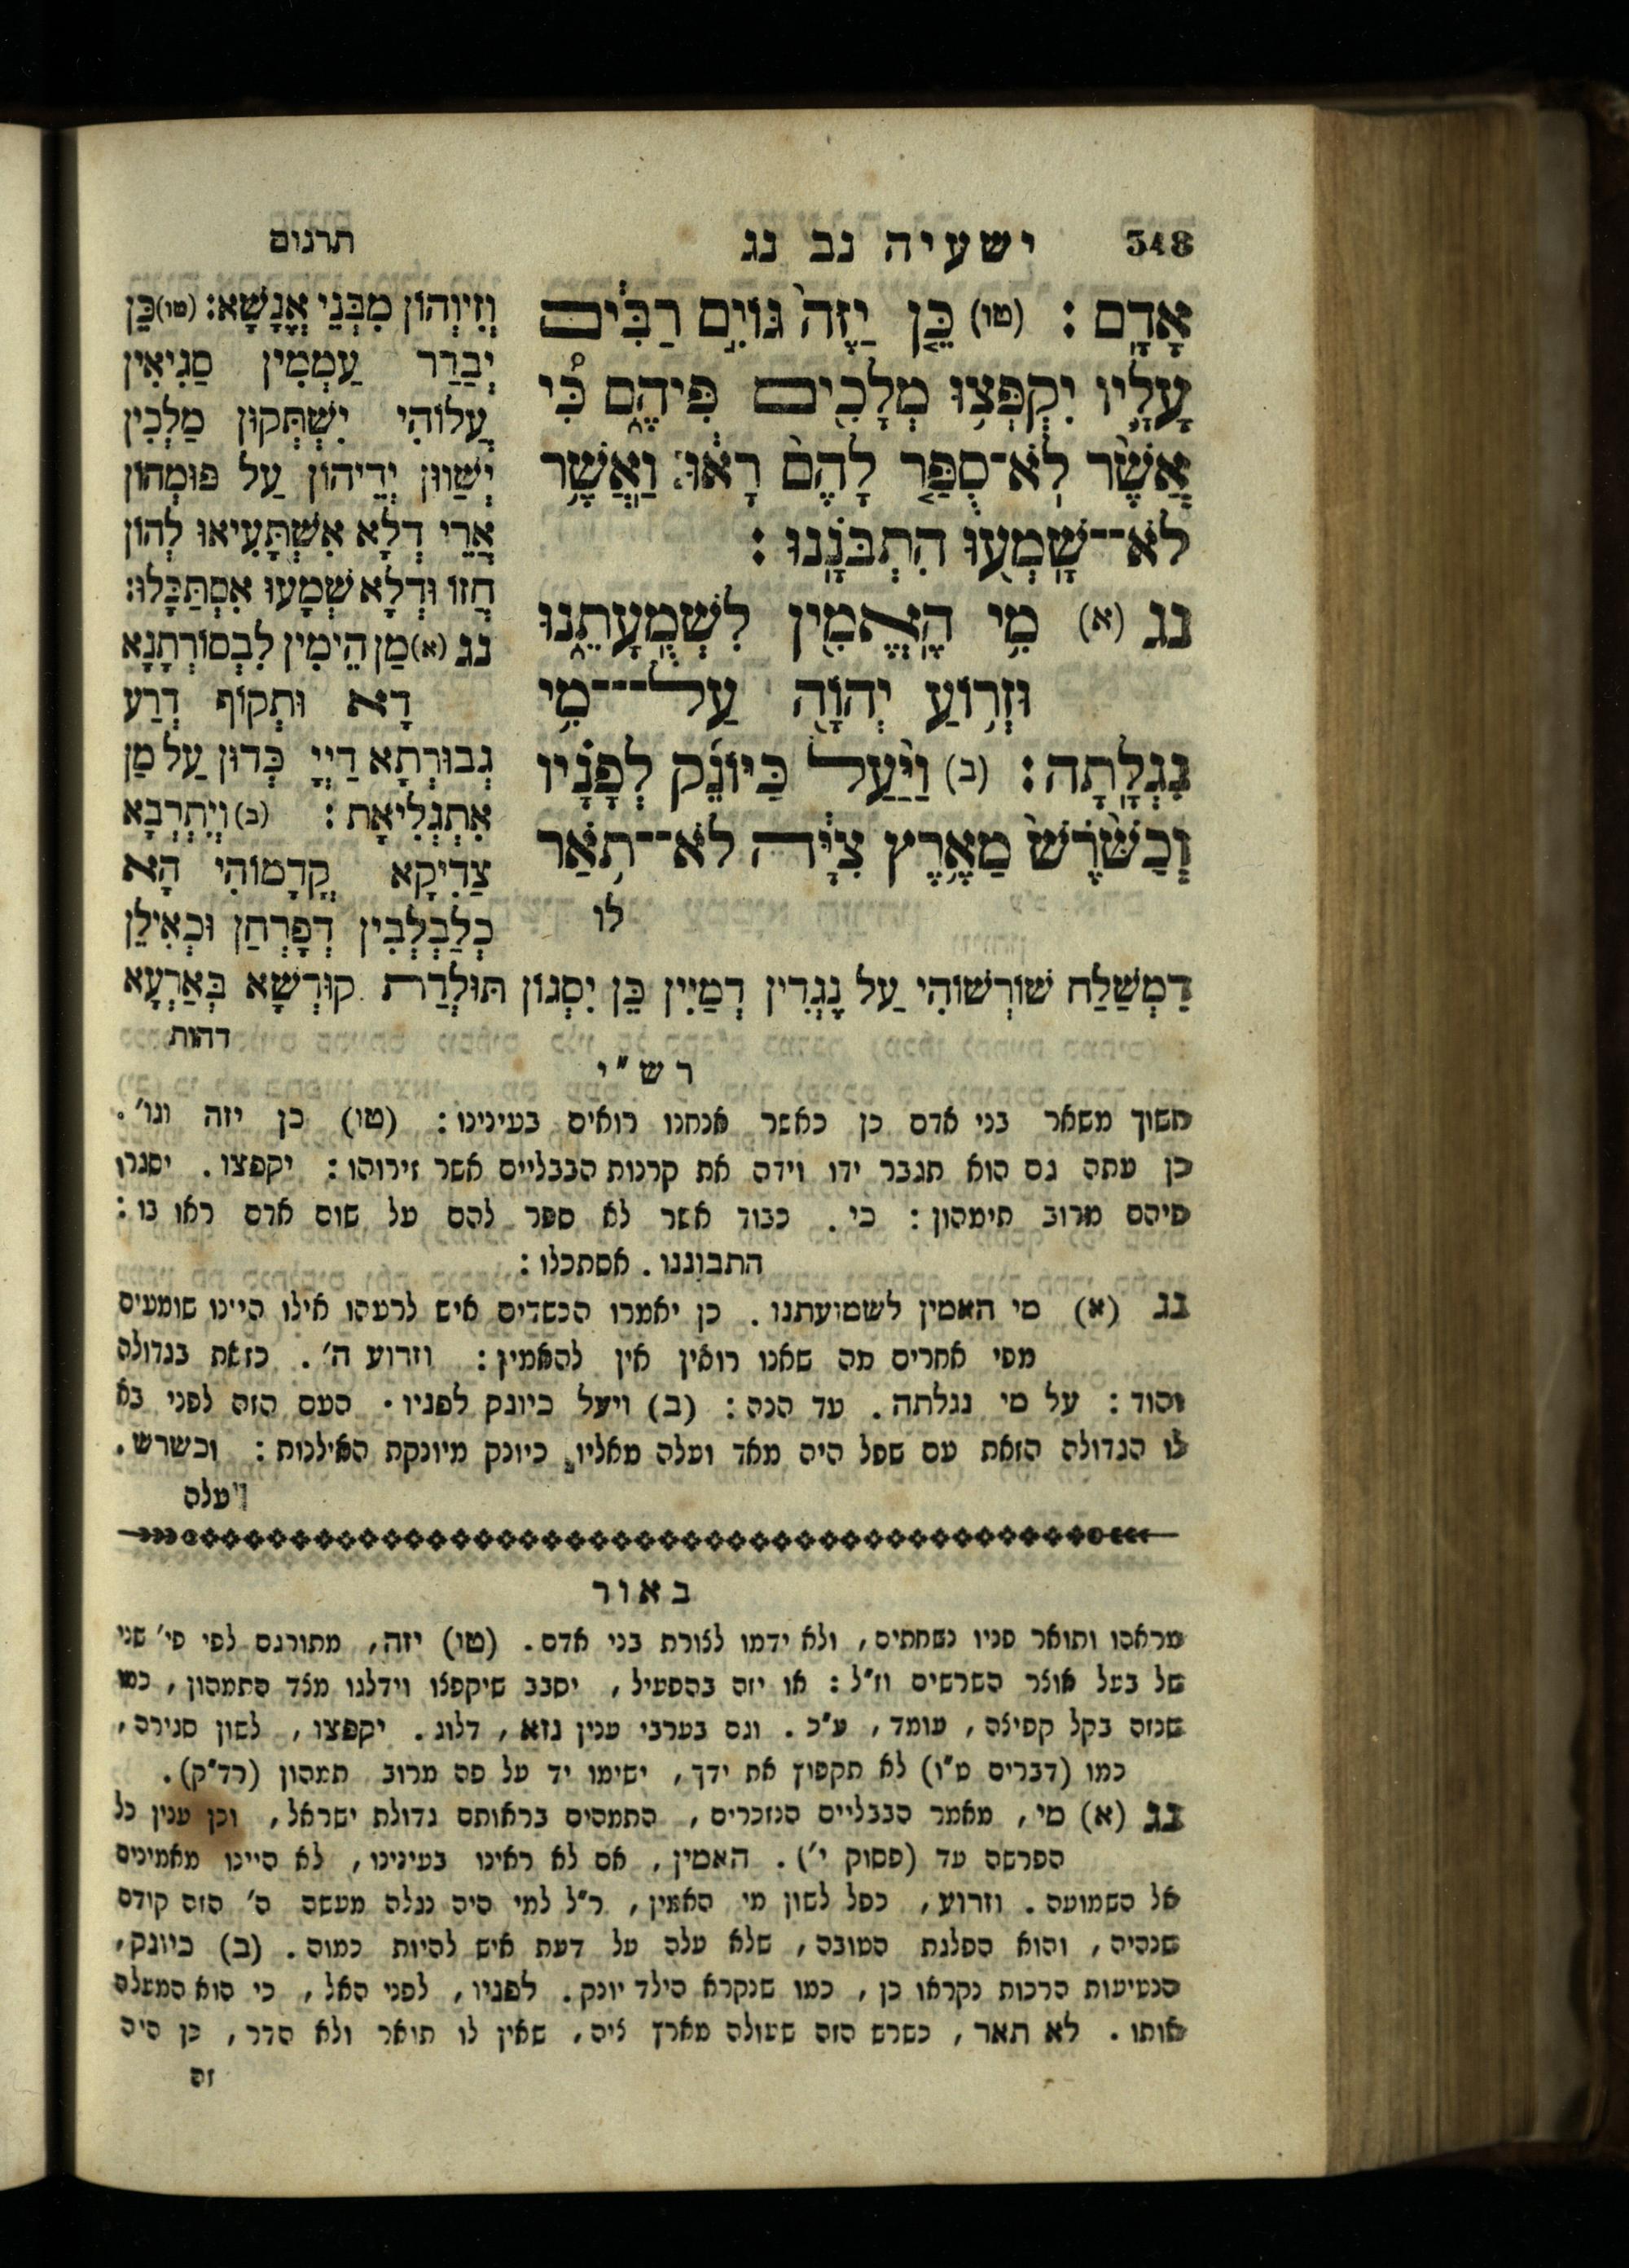 348 ישעיה נב נג תרגום
אָדָֽם׃ (טו) כֵּ֤ן יַזֶּה֙ גּוֹיִ֣ם רַבִּ֔ים
עָלָ֛יו יִקְפְּצ֥וּ מְלָכִ֖ים פִּיהֶ֑ם כִּ֠י
אֲשֶׁ֨ר לֹֽא־סֻפַּ֤ר לָהֶם֙ רָא֔וּ וַאֲשֶׁ֥ר
לֹא־שָֽׁמְע֖וּ הִתְבּוֹנָֽנוּ׃
נג (א) מִ֥י הֶאֱמִ֖ין לִשְׁמֻעָתֵ֑נוּ
וּזְר֥וֹעַ יְהוָֹ֖ה עַל־מִ֥י
נִגְלָֽתָה׃ (ב) וַיַּ֨עַל כַּיּוֹנֵ֜ק לְפָנָ֗יו
וְכַשֹּׁ֨רֶשׁ֙ מֵאֶ֣רֶץ צִיָּ֔ה לֹא־תֹ֥אַר
לו
וְזִיוְהוֹן מִבְּנֵי אֱנָשָׁא׃ (טו) כֵּן
יְבַדַּר עַמְמִין סַגִיאִין
עֲלוֹהִי יִשְׁתְּקוּן מַלְכִין
יְשַׁווּן יְדֵיהוֹן עַל פּוּמְהוֹן
אֲרֵי דְלָא אִשְׁתָּעִיאוּ לְהוֹן
חֲזוֹ וּדְלָא שְׁמָעוּ אִסְתַּכָּלוּ׃
נג (א) מַן הֵימִין לִבְסוֹרְתָנָא
דָא וּתְקוֹף דְרַע
גְבוּרְתָא דַיְיָ כְּדוּן עַל מַן
אִתְגְלִיאָת׃ (ב) וְיִתְרְבָא
צַדִיקָא קֳדָמוֹהִי הָא
כְלַבְלְבִין דְפָרְחַן וּכְאִילָן
דִמְשַׁלַח שׁוֹרְשׁוֹהִי עַל נָגְדִין דְמַיִין כֵּן יִסְגוֹן תּוּלְדַת קוּדְשָׁא בְּאַרְעָא
דהות
רש״י
חשוך משאר בני אדם כן כאשר אנחנו רואים בעינינו׃ (טו) כן יזה וגו׳.
כן עתה גם הוא תגבר ידו וידה את קרנות הבבליים אשר זירוהו׃ יקפצו. יסגרו
פיהם מרוב תימהון׃ כי. כבוד אשר לא ספר להם על שום אדם ראו בו׃
התבוננו. אסתכלו׃
נג (א) מי האמין לשמועתנו. כן יאמרו הכשדים איש לרעהו אילו היינו שומעים
מפי אחרים מה שאנו רואין אין להאמין׃ וזרוע ה׳. כזאת בגדולה
והוד׃ על מי נגלתה. עד הנה׃ (ב) ויעל כיונק לפניו. העם הזה לפני בא
לו הגדולה הזאת עם שפל היה מאד ועלה מאליו, כיונק מיונקת האילנות׃ וכשרש.
ויעלה
באור
מראהו ותואר פניו נשחתים, ולא ידמו לצורת בני אדם. (טו) יזה, מתורגם לפי פי׳ שני
של בעל אוצר השרשים וז״ל׃ או יזה בהפעיל, יסבב שיקפצו וידלגו מצד התמהון, כמו
שנזה בקל קפיצה, עומד, ע״כ. וגם בערבי ענין נזא, דלוג. יקפצו, לשון סגירה,
כמו (דברים ט״ו) לא תקפוץ את ידך, ישימו יד על פה מרוב תמהון (רד״ק).
נג (א) מי, מאמר הבבליים הנזכרים, התמהים בראותם גדולת ישראל, וכן ענין כל
הפרשה עד (פסוק י׳). האמין, אם לא ראינו בעינינו, לא היינו מאמינים
אל השמועה. וזרוע, כפל לשון מי האמין, ר״ל למי היה נגלה מעשה ה׳ הזה קודם
שנהיה, והוא הפלגת הטובה, שלא עלה על דעת איש להיות כמוה. (ב) כיונק,
הנטיעות הרכות נקראו כן, כמו שנקרא הילד יונק. לפניו, לפני האל, כי הוא המעלה
אותו. לא תאר, כשרש הזה שעולה מארץ ציה, שאין לו תואר ולא הדר, כן היה
זה